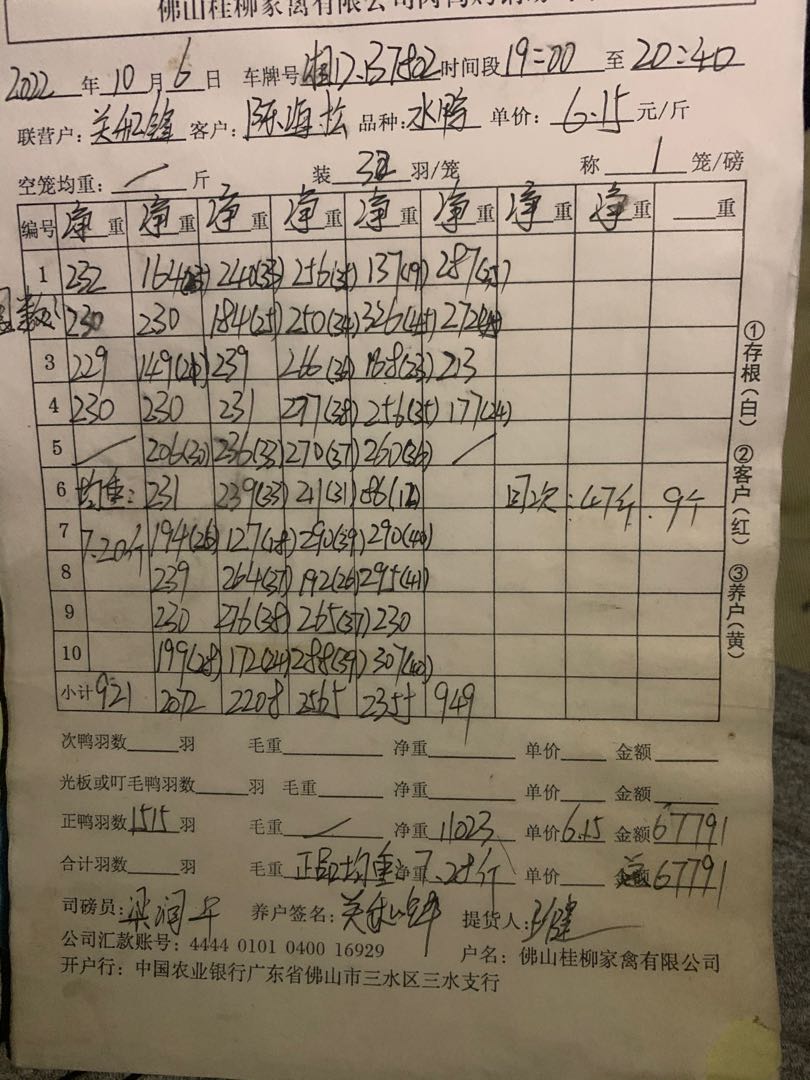 佛山桂柳家禽有限公司
2022 年 10 月 6 日 车牌号 湘D.37802 时间段 19:00 至 20:40
联营户: 客户: 陈海松 品种: 水鸭 单价: 6.15 元/斤
空笼均重: / 斤 装 羽/笼 称 1 笼/磅
编号 净重 净重 净重 净重 净重 净重 净重 净重 重
1 232 164 240(33) 256(35) 137(19) 287
230 230 184(25) 250(34) 326(45) 272
3 229 149 239 266(36) 168(23) 213
4 230 230 231 297(38) 256(35) 177(24)
5 / 206(30) 236(33) 270(37) 260(36) /
6 均重: 231 239(33) 241(31) 86(12) 47斤 . 9个
7 7.20斤 194(26) 127(18) 290(39) 290(40)
8 239 264(37) 192(26) 295(41)
9 230 276(38) 265(37) 230
10 199(28) 172(24) 288(39) 307(40)
小计 921 2072 2208 2565 2355 949
①存根(白) ②客户(红) ③养户(黄)
次鸭羽数 羽 毛重 净重 单价 金额
光板或叮毛鸭羽数 羽 毛重 净重 单价 金额
正鸭羽数 1515 羽 毛重 / 净重 11023 单价 6.15 金额 67791
合计羽数 羽 毛重 正品均重 净 7.28斤 单价 67791
司磅员: 梁润 养户签名: 提货人:
公司汇款账号: 4444 0101 0400 16929 户名: 佛山桂柳家禽有限公司
开户行: 中国农业银行广东省佛山市三水区三水支行